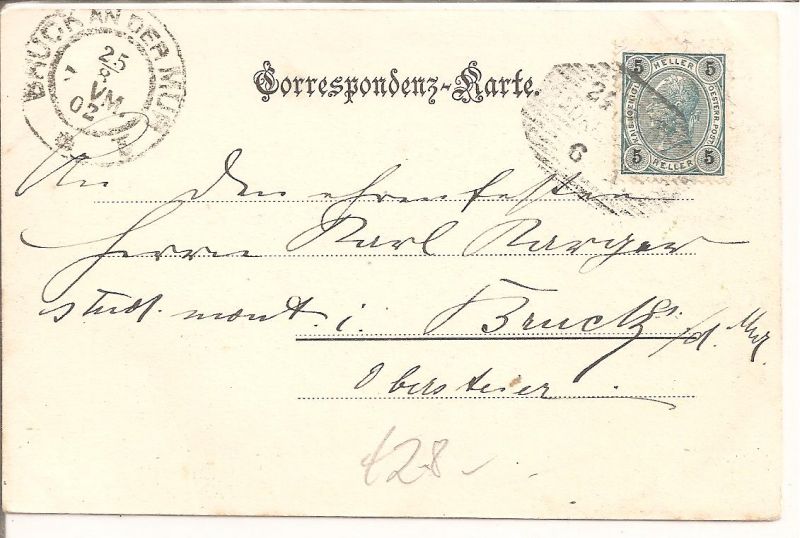 BRUCK AN DER MUR
25
8
VM
02
Correspondenz-Karte.
5 HELLER 5
KAIS. KOENIGL. OESTERR. POST
5 HELLER 5
6
An den ehrenfesten
Herrn Karl Karger
stud. mont. i. Bruck a/d. Mur
Obersteier
428